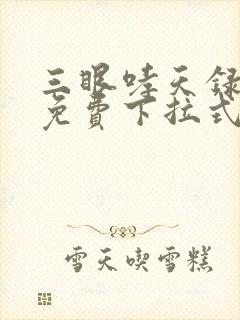 三眼哇天録
免費下拉式
雪天喫雪糕